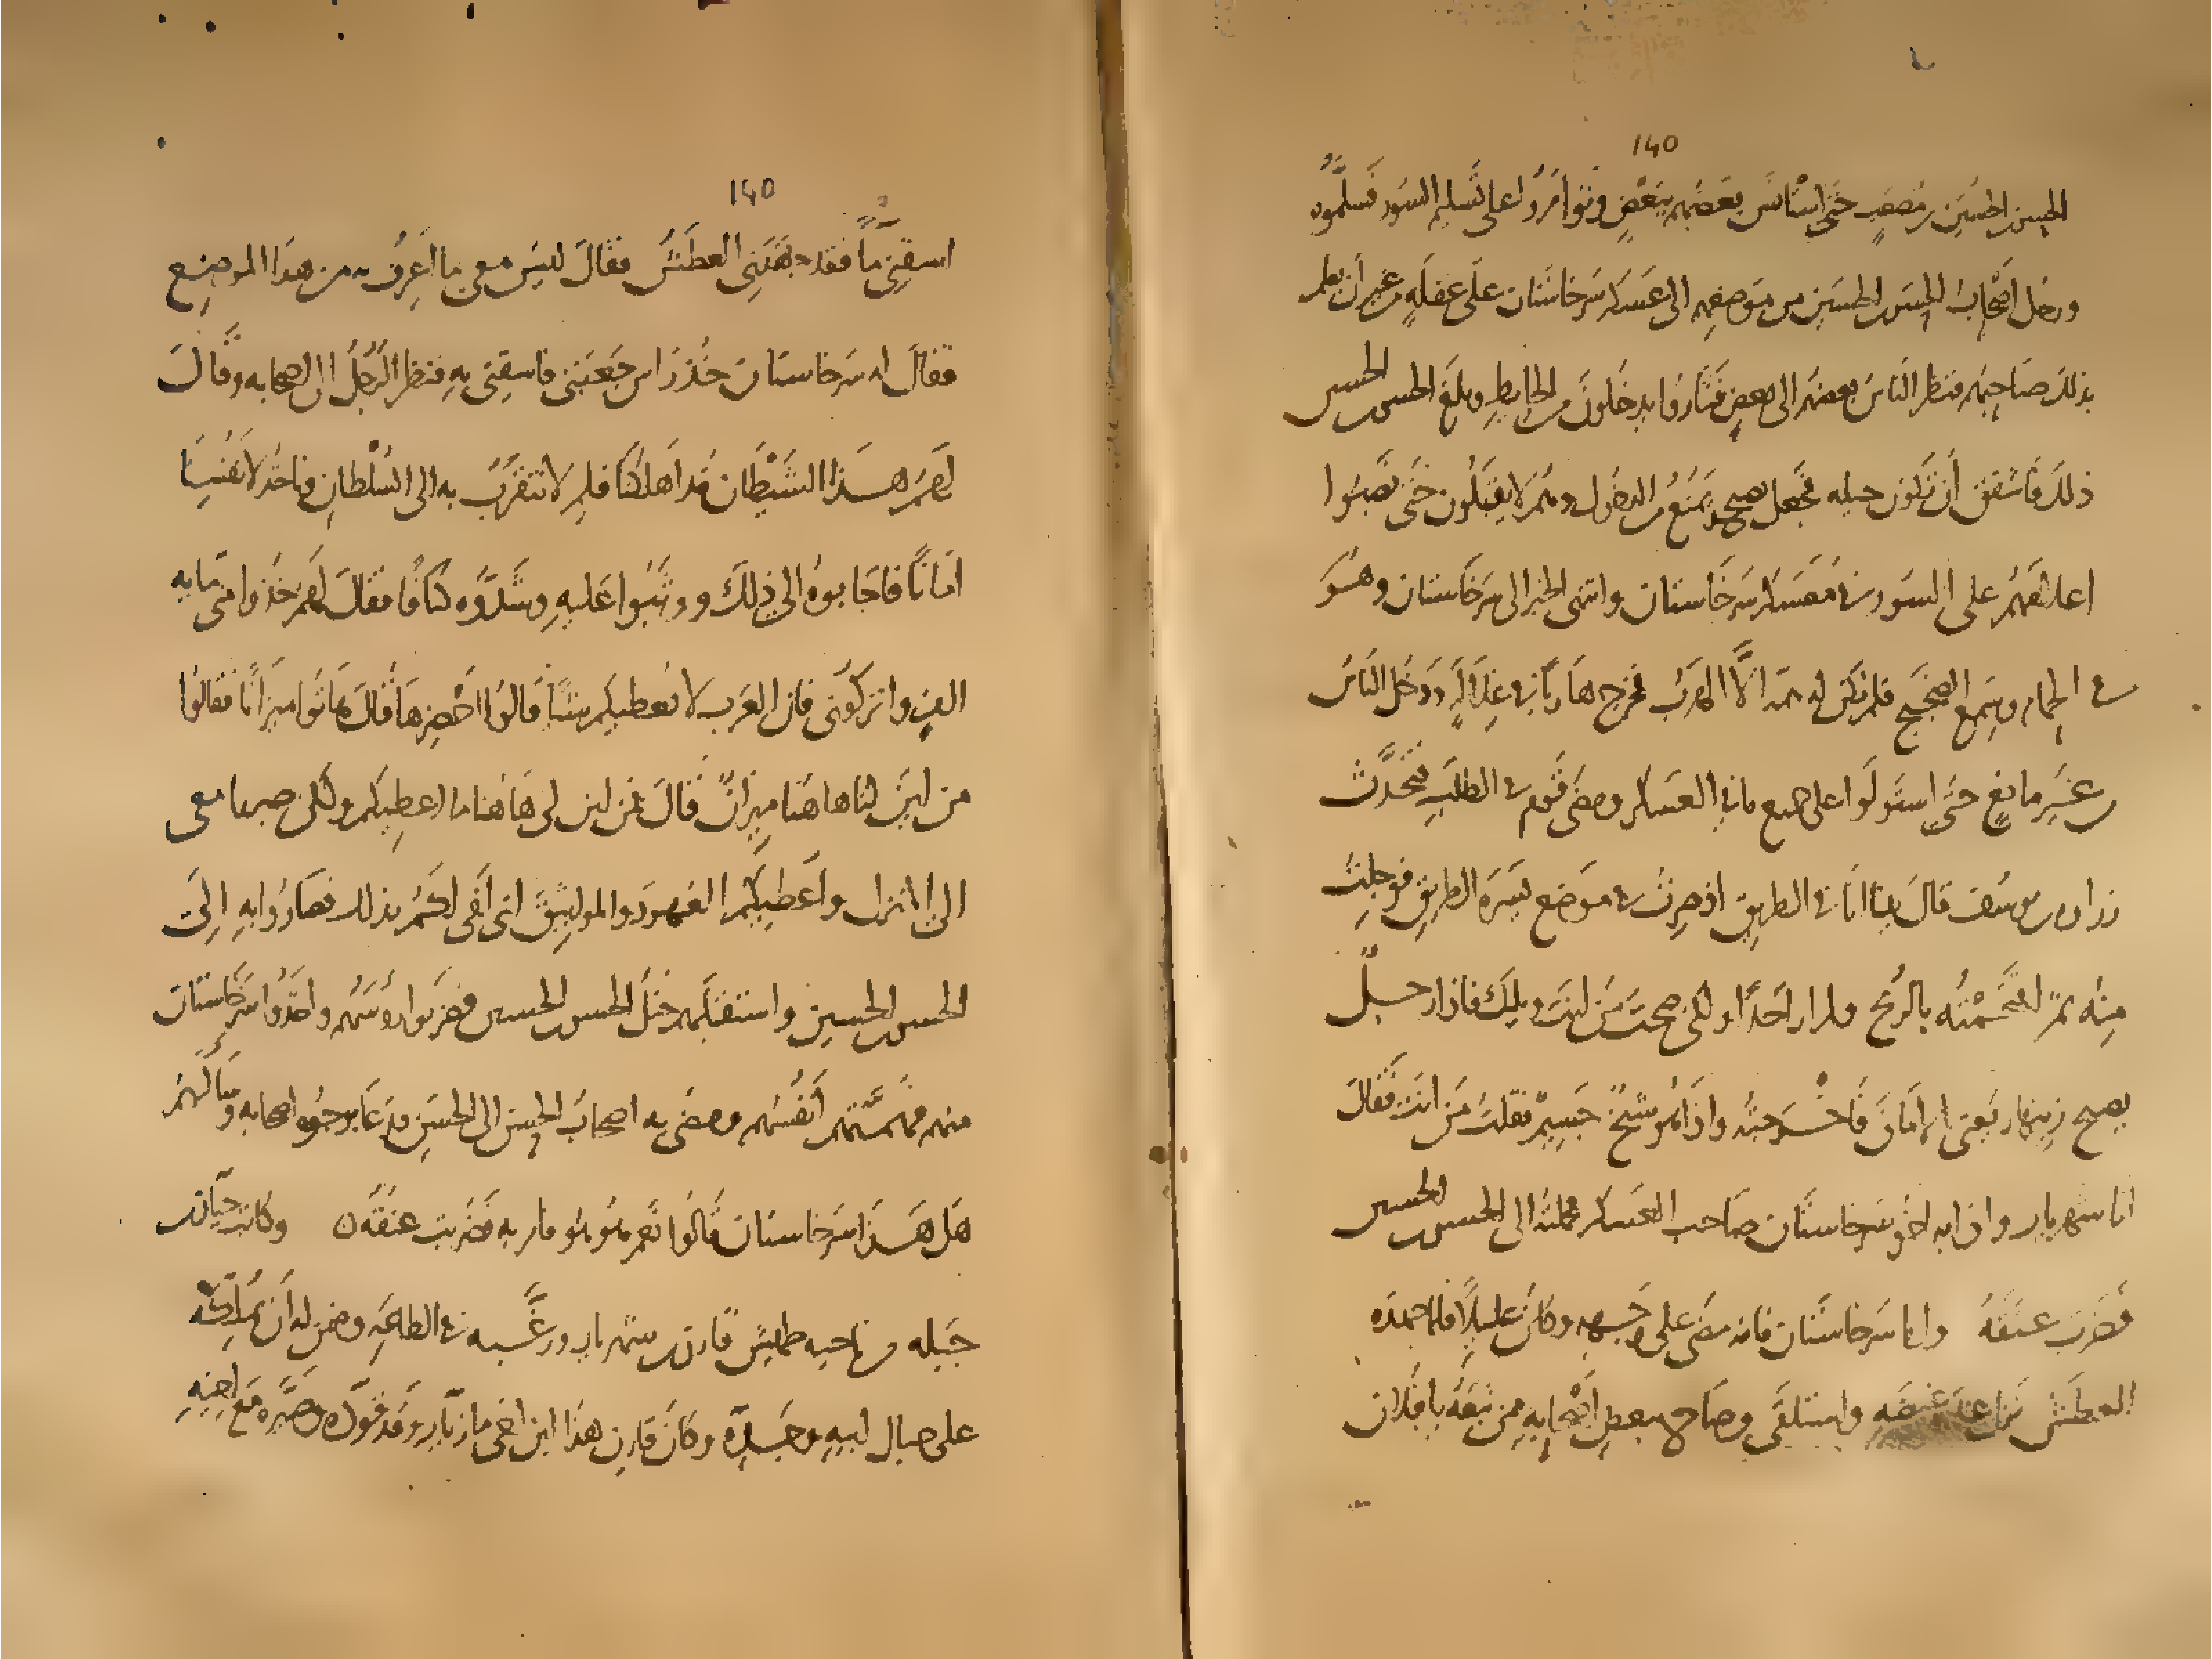 140
الحسن بن الحسين بن مصعب حتى استأنس بعضهم ببعض وتوامروا على تسليم السور فسلموه
ودخل أصحاب الحسن بن الحسين من موضعهم الى عسكر سرخاستان على غفلةٍ من غير أن يعلم
بذلك صاحبهم فنظر الناس بعضهم الى بعضٍ فثاروا يدخلون من الحايط وبلغ الحسن بن الحسين
ذلك فأشفق أن تكون حيله فجعل يصيح بهم ويمنع من الدخول وهم لا يقبلون حتى نصبوا
اعلامهم على السور في معسكر سرخاستان وانتهى الخبر الى سرخاستان وهو
في الحمام وسمع الضجيج فلم تكن له همة الا الهرب فخرج هارباً في غلالةٍ ودخل الناس
من غير مانعٍ حتى استولوا على جميع ما في العسكر ومضى قوم في الطلب فتحدث
زراره بن يوسف قال بينا انا في الطريق اذ صرت في موضع يسره الطريق فوجلت
منه ثم اقتحمته بالرمح ولم ار احداً ولكني صحت من انت ويلك فاذا رجل
يصيح زينهار يعني الامان فاخذته واذا هو شيخ جسيم فقلت من انت فقال
انا شهريار واذا به اخو سرخاستان صاحب العسكر فحملته الى الحسن بن الحسين
فضرب عنقه واما سرخاستان فانه مضى على وجهه وكان عليلاً فلما جهده
العطش نزل عند غيضه واستلقى وصاح ببعض أصحابه من ثقه يا فلان
140
اسقني ماً فقد جهدني العطش فقال ليس معي ما اغرف به من هذا الموضع
فقال له سرخاستان خذ راس جعبتي فاسقني به فنظر الرجل الى اصحابه وقال
لهم هذا الشيطان قد اهلكنا فلم لا نتقرب به الى السلطان وناخذ لانفسنا
اماناً فاجابوه الى ذلك ووثبوا عليه وشدوه كتافاً فقال لهم خذوا مني مايه
الف واتركوني فان العرب لا تعطيكم شيئاً قالوا احضرها قال هاتوا ميزاناً فقالوا
من اين لنا هاهنا ميزان قال فمن اين لي هاهنا ما اعطيكم ولكن صيروا معي
الى المنزل واعطيكم العهود والمواثيق اني أفي لكم بذلك فصاروا به إلى
الحسن بن الحسين واستقبلهم خيل الحسن بن الحسين فضربوا رؤسهم واخذوا سرخاستان
منهم فهمتهم أنفسهم ومضى به اصحاب الحسن الى الحسن فدعا بوجوه اصحابه وسالهم
هل هذا سرخاستان قالوا نعم هو هو فامر به فضربت عنقه وكانت حيّان بن
جبله من ناحيه طميش قارن بن شهريار ورغبه في الطاعه وضمن له أن يملكه
على جبال ابيه وجده وكان قارن هذا ابن اخي مازيار وقد قوده وصيره مع اخيه